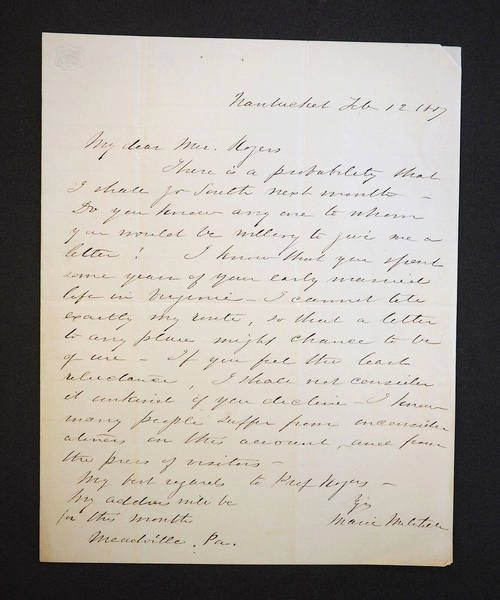 Nantucket Feb 12 1857
My dear Mrs. Rogers
There is a probability that
I shall go South next month –
Do you know any one to whom
you would be willing to give me a
letter? I know that you spent
some years of your early married
life in Virginia – I cannot tell
exactly my route, so that a letter
to any place might chance to be
of use – If you feel the least
reluctance, I shall not consider
it unkind if you decline – I know
many people suffer from inconsider
ateness on this account, and from
the press of visitors –
My best regards to Prof Rogers –
My address will be
for this month
Meadville, Pa.
Yrs
Maria Mitchell